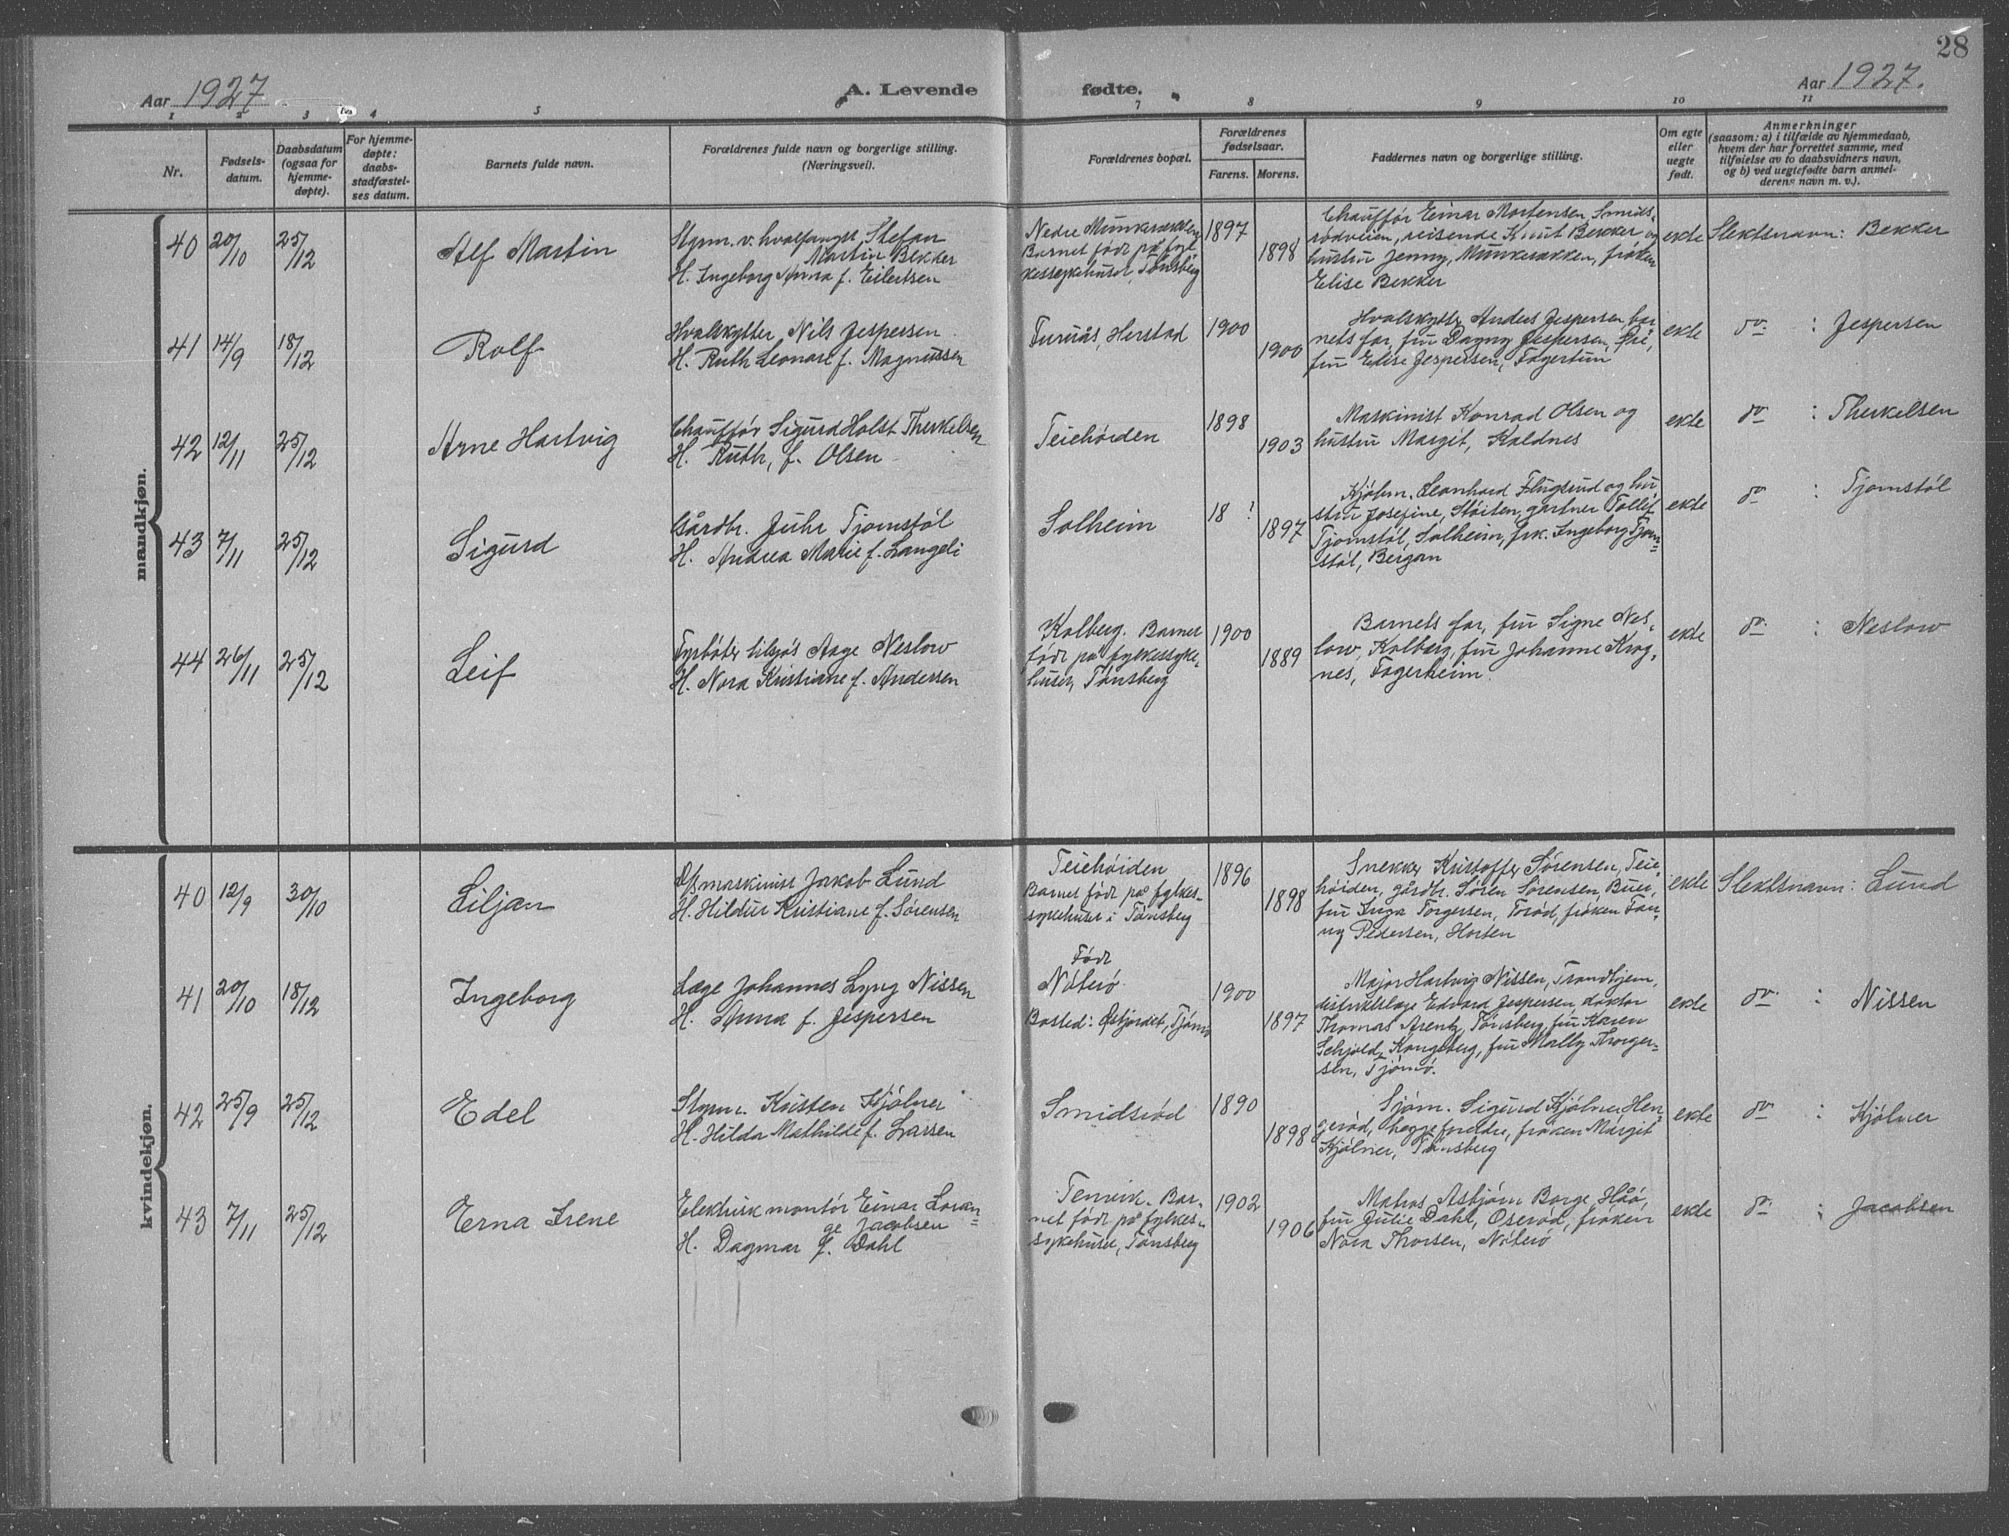 28
Aar 1927
A. Levende fødte.
Aar 1927.
1 2 3 4 5 7 8 9 10 11
Nr.
Fødsels-
datum.
Daabsdatum
(ogsaa for
hjemme-
døpte).
For hjemme-
døpte:
daabs-
stadfæstel-
ses datum.
Barnets fulde navn.
Forældrenes fulde navn og borgerlige stilling.
(Næringsvei).
Forældrenes bopæl.
Forældrenes
fødselsaar.
Farens. Morens.
Faddernes navn og borgerlige stilling.
Om egte
eller
uegte
født.
Anmerkninger
(saasom: a) i tilfælde av hjemmedaab,
hvem der har forrettet samme, med
tilføielse av to daabsvidners navn,
og b) ved uegtefødte barn anmel-
derens navn m. v.).
mandkjøn.
40 20/10 25/12
Alf Martin
Styrm. v. hvalfangst Stefan
Martin Bekker
H. Ingeborg Anna f. Eilertsen
Nedre Munkerekken
Barnet født på fyl-
kessykehuset, Tønsberg
1897
1898
Chauffør Einar Mortensen, Smids-
rødveien, reisende Knut Bekker og
hustru Jenny, Munkerekken, frøken
Elise Bekker
ekte
Slektsnavn: Bekker
41 14/9 18/12
Rolf
Hvalskytter Nils Jespersen
H. Ruth Leonore f. Magnussen
Furuås, Herstad
1900
1900
Hvalskytter Anders Jespersen, bar-
nets far, fru Dagny Jespersen, Øie,
fru Elise Jespersen, Fagertun
ekte
do : Jespersen
42 12/11 25/12
Arne Hartvig
Chauffør Sigurd Holst Therkelsen
H. Ruth, f. Olsen
Teiehøiden
1898
1903
Maskinist Konrad Olsen og
hustru Margit, Kaldnes
ekte
do : Therkelsen
43 7/11 25/12
Sigurd
Gårdbr. Juhr Tjomstøl
H. Andrea Marie f. Langeli
Solheim
18 ?
1897
Kjøbm. Leonhard Flugsrud og hu-
stru Josefine, Støiten, gartner Tollef
Tjomstøl, Solheim, frk. Ingeborg Tjom-
støl, Bergan
ekte
do : Tjomstøl
44 26/11 25/12
Leif
Fyrbøter tilsjøs Aage Neslow
H. Nora Kristiane f. Andersen
Kolberg. Barnet
født på fylkessyke-
huset, Tønsberg
1900
1889
Barnets far, fru Signe Nes-
low, Kolberg, fru Johanne Krog-
nes, Fagerheim.
ekte
do : Neslow
kvindekjøn.
40 12/9 30/10
Liljan
D/S maskinist Jakob Lund
H. Hildur Kristiane f. Sørensen
Teiehøiden
Barnet født på fylkes-
sykehuset i Tønsberg
1896
1898
Snekker Kristoffer Sørensen, Teie-
høiden, gårdbr. Søren Sørensen, Buer,
fru Inga Torgersen, Torød, frøken Fan-
ny Pedersen, Horten
ekte
Slektsnavn: Lund
41 20/10 18/12
Ingeborg
Læge Johannes Lyng Nissen
H. Anna f. Jespersen
Født
Nøterø
Bosted: Østjordet, Tjømø
1900
1897
Major Hartvig Nissen, Trondhjem,
distriktslæge Edvard Jespersen, doktor
Thomas Arentz, Tønsberg, fru Karen
Schjold, Kongsberg, fru Molly Thorger-
sen, Tjømø.
ekte
do : Nissen
42 25/9 25/12
Edel
Styrm. Kristen Kjølner
H. Hilda Mathilde f. Larsen
Smidsrød
1890
1898
Sjøm. Sigurd Kjølner, Hen-
gerød, begge foreldre, frøken Margit
Kjølner, Tønsberg
ekte
do : Kjølner
43 7/11 25/12
Erna Irene
Elektrisk montør Einar Loran-
ge Jacobsen
H. Dagmar f. Dahl
Tenvik. Bar-
net født på fylkes-
sykehuset, Tønsberg
1902
1906
Matros Asbjørn Borge, Håø,
fru Julie Dahl, Oserød, frøken
Nora Thorsen, Nøterø
ekte
do : Jacobsen